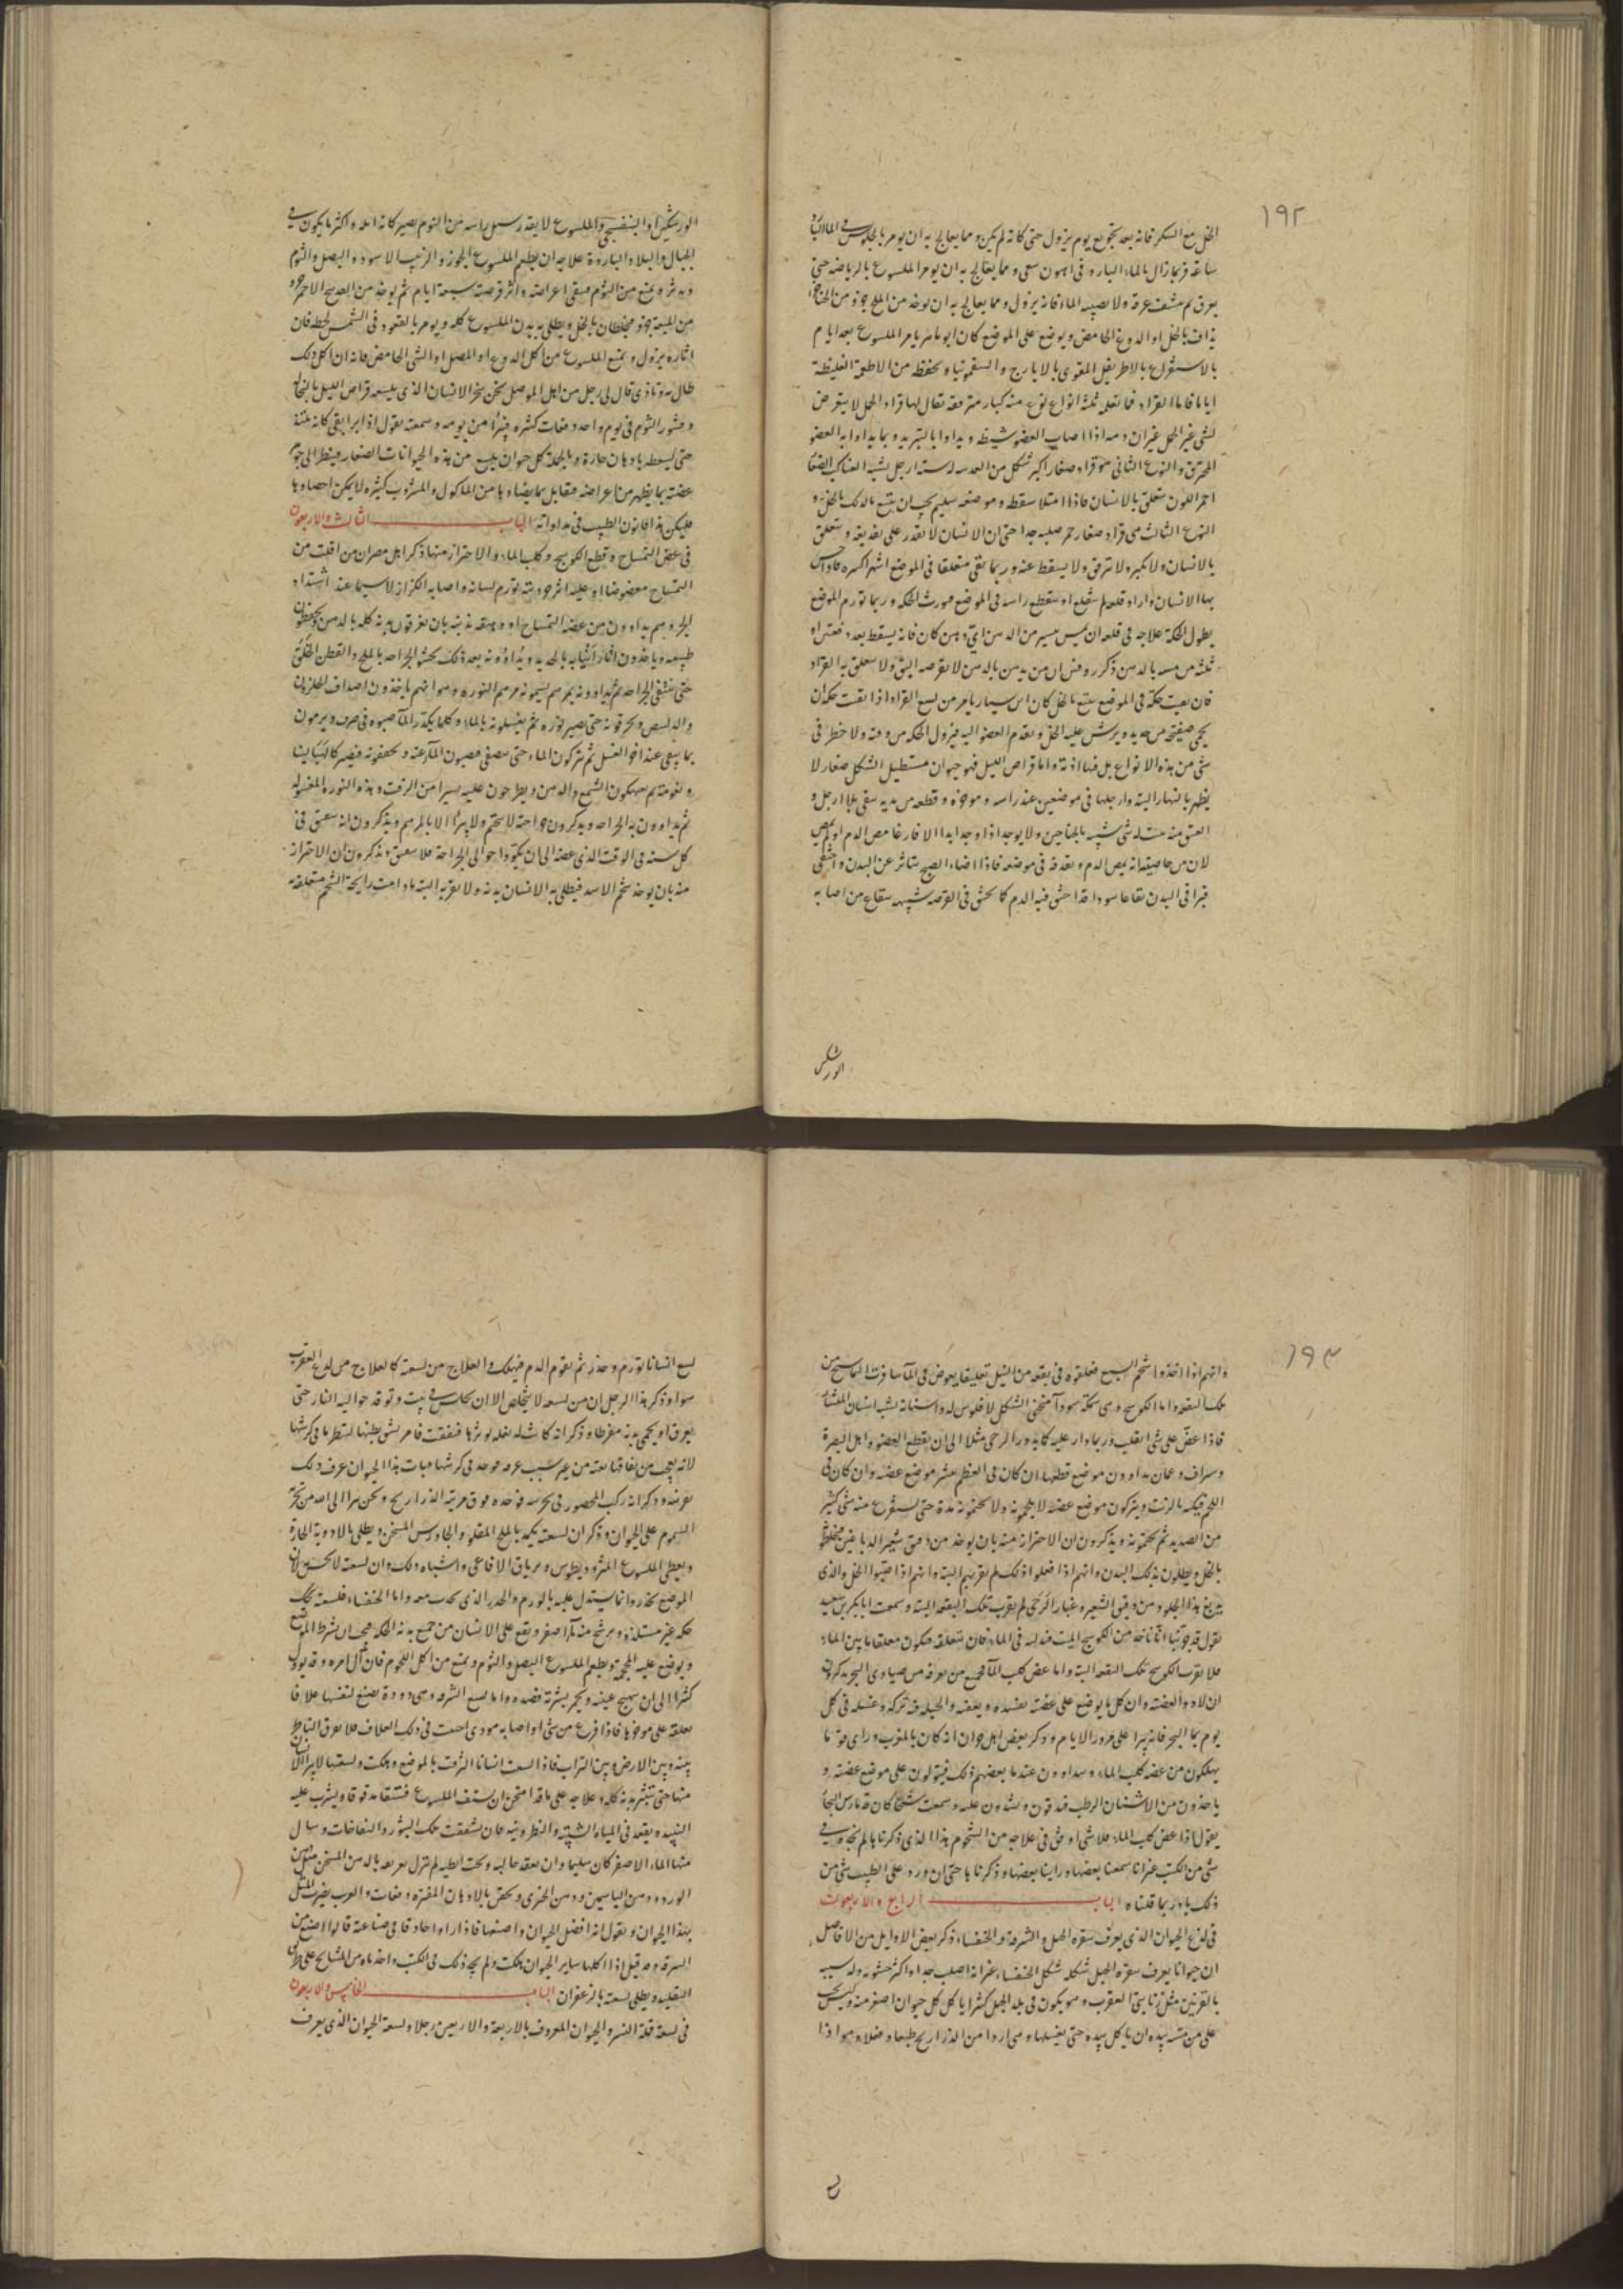 ١٩٢
الخل مع السكر فانه بعد يوم يزول حتى كانه لم يكن ومما يعالج به ان يومر بالجلوس في
ساعة بالماء البارد فى اهون سعى ومما يعالج به ان يومر الملسوع بالرياضة حتى
يعرق ثم ينشف عرقه ولا يصيبه الماء فانه يزول ومما يعالج به ان يوخذ من الملح جزو من
يداف بالخل او الدوغ الحامض ويوضع على الموضع كان ابو ماهر يامر الملسوع بعد ايام
بالاستفراغ بالاطريفل المقوى بالايارج والسقمونيا ويحفظ من الاطعمة الغليظة
اياما فاما القراد ثلثة انواع نوع منه كبار يقال لها قراد الجمل لا يتعرض
لشى غير الجمل غير ان دمه اذا اصاب العضو ويداوا بالتبريد وبما يداوا به العضو
المحترق والنوع الثانى هو قراد صغار اكبر شكل من العدسه له ستة ارجل يشبه العناكب الصغار
احمر اللون يتعلق بالانسان فاذا امتلا سقط وموضعه سليم يجب ان يتبع بالدلك بالخل و
النوع الثالث هى قراد صغار حمر صلبه جدا حتى ان الانسان لا يقدر على ويتعلق
بالانسان ولا يكبر ولا يسقط عنه وربما بقى متعلقا فى الموضع اشهرا
بها الانسان واراد قلعه لم ينقلع او ينقطع راسه فى الموضع فيورث الحكه وربما تورم الموضع
يطول الحكة علاجه فى قلعه ان يمس بيسير من الدهن اى دهن كان فانه يسقط بعد دفعتين او
ثلثة من مسه بالدهن ان من يدهن بالدهن لا يقرصه البق ولا يتعلق به القراد
فان بقيت حكة فى الموضع يتبع بالخل كان ابن سيار يامر من لسع القراد اذا بقيت حكه ان
يحمى صفيحة من حديد ويرش عليه الخل ويقدم العضو اليه فيزول الحكه من وقته ولا خطر فى
شى من هذه الانواع بل فيها اذية واما قراص الليل فهو حيوان مستطيل الشكل صغار لا
يظهر بالنهار البته وارجلها فى موضعين عند راسه وموخره وقطعه من بدنه بقى بلا ارجل و
العتق منه له شى شبيه بالجناحين ولا يوجد اذا وجد ابدا الا فارغا مص الدم او لم يمص
لان من خاصيته انه يمص الدم ويقذفه فى موضعه فاذا اضاء الصبح تناثر عن البدن واختفى
فيرا فى البدن بقاعا سودا قد احتقن فيه الدم كما يحتقن فى القرصه شبيهه ببقاع من اصابه
الورشكين
الورشكين او البنفسجى والملسوع لا يقدر يسل راسه من النوم يصير كانه ابله واكثر ما يكون فى
الجبال والبلاد الباردة علاجه ان يطعم الملسوع الجوز والزبيب الاسود والبصل والثوم
ويدثر ويمنع من النوم فيبقى اعراضه واثر قرصته سبعة ايام ثم يوخذ من الاحمر جزو
من الميعة جزو ويخلطان بالخل ويطلى به بدن الملسوع كله ويومر بالقعود فى الشمس لحظه فان
اثاره يزول ويمنع الملسوع من اكل الدوغ او المصل او الشى الحامض فانه ان اكل ذلك
طال به وتاذى قال لى رجل من اهل الموصل نحن نبخر الانسان الذى يلسعه قراص الليل بالنخالة
وقشور الثوم فى يوم واحد دفعات كثيره فيبرأ من يومه وسمعته يقول اذا لم يبرا بقى كانه
حتى يسعط بادهان حارة وبالجملة كل حيوان يلسع من هذه الحيوانات الصغار فينظر الى جوهر
عضته بما يظهر من اعراضه فيقابل بما يضادها من الماكول والمشروب كثيره لا يمكن احصاوها
فليكن هذا قانون الطبيب فى مداواته الباب الثالث والاربعون
فى عض التمساح وقطع الكوسج وكلب الماء والاحتراز منها ذكر اهل مصر ان من افلت من
التمساح معضوضا او عليه اثر جره تورم لسانه واصابه الكزاز لاسيما عند اشتداد
الحر وهم يداوون من عضه التمساح بان يغرقون بدنه كله بالدهن ويحفظون
طبيعه وياخذون اثار انيابه بالحديد ويداوونه بعد ذلك بحشو الجراحه بالملح والقطن الخلق
حتى ينقى الجراحه ثم يداوونه بمرهم يسمونه مرهم النوره وهو انهم ياخذون اصداف الحلزون
والدلينس ويحرقونه حتى يصير نورة ثم يغسلونه بالماء وكلما يكدر الما صبوه ويرمون
بما يبقى عند اخر الغسل ثم يتركون الماء حتى يصفى فيصبون الما عنه ويجففونه فيصير كالهبا لينا
ونعومة ثم يسهكون الشمع والدهن ويطرحون عليه يسيرا من الزفت وهذه النوره المغسوله
ثم يداوون به الجراحه ويذكرون ان جراحته لا يختم ولا يبرأ الا بالمرهم ويذكرون انه يتفق فى
كل سنه فى الوقت الذى عضه الى ان الجراحة فلا ويذكرون ان الاحتراز
منه بان يوخذ شحم الاسد فيطلى به الانسان بدنه ولا يقربه البته ما دامت رايحة الشحم متعلقه به
١٩٣
وانهم اذا اخذوا شحم السبع فعلقوه فى بقعه من النيل تعليقا يعوض فى الما سافرت التماسيح من
تلك البقعه واما الكوسج وهى سمكة سودآ الشكل لا فلوس له واسنانه يشبه اسنان المنشار
فاذا عض على شى انقلب وربما دار عليه كما يدور الرحى مثلا الى ان يقطع العضو واهل البصرة
وسيراف وعمان يداوون موضع قطعها ان كان فى العظم بنشر موضع عضه وان كان فى
اللحم فيكيه بالزيت ويتركون موضع عضته لا يلحمونه ولا يختمونه مدة حتى يستفرغ منه شى كثير
من الصديد ثم يختمونه ويذكرون ان الاحتراز منه بان يوخذ من دقيق شعير الدباغين مخلوط
بالخل ويطلون بذلك البدن وانهم اذا فعلوا ذلك لم يقربهم البته وانهم اذا صبوا الخل والذى
يدبغ بهذا الجلود من دقيق الشعير وغبار الرحى لم يقرب تلك البقعه البته وسمعت ابا بكر بن سعيد
يقول قد جربنا انا ناخذ من الكوسج الميت فى الماء فان تعلقه فيكون معلقا ما بين الماء
فلا يقرب الكوسج تلك البقعه البته واما عض كلب الما فجميع من نعرفه من صيادى البحر يذكرون
ان لا دوا لعضته وان كل ما يوضع على عضته يفسده ويعفنه والحيلة فيه تركه وغسله فى كل
يوم بما البحر فانه يبرا على مرور الايام وذكر بعض اهل حران انه كان بالمغرب وراى قوما
يهلكون من عضه كلب الماء ويداوون عندنا بعضهم ذلك فيبولون على موضع عضته و
ياخذون من الاشنان الرطب فيدقون ويشدون عليه وسمعت شيخا كان قد مارس البحار
يقول اذا عض كلب الماء فلا شى اوفق فى علاجه من الشحوم هذا الذى ذكرناه لم نجده فى
شى من الكتب غير انا سمعنا بعضها وراينا بعضها وذكرناها حتى ان ورد على الطبيب شى من
ذلك بادر بما قلناه الباب الرابع والاربعون
فى لذع الحيوان الذى يعرف ببقرة الجبل والشرفة والخنفساء ذكر بعض الاوايل من الافاضل
ان حيوانا يعرف ببقرة الجبل شكله شكل الخنفساء غير انه اصلب جدا واكثر خشونه وله شبيه
بالقرنين مثل زبانتى العقرب وهو يكون فى بلد الجبل كثيرا ياكل كل حيوان اصغر منه
على من مسه بيده ان ياكل بيده حتى يغسلها وهى اردا من الذراريح طبعا وفعلا وهو اذا
لسع
لسع انسانا تورم وخدر ثم يقوم الدم فيهلك والعلاج من لسعته كالعلاج من لدغ العقرب
سوا وذكر هذا الرجل ان من لسعه لا يتخلص الا ان يجلس فى بيت وتوقد حواليه النار حتى
يعرق او يحمى بدنه مفرطا وذكر انه كانت له بغله يوثرها فنفقت فامر بشق بطنها لينظر ما فى كرشها
لانه تعجب من نفاقها بغته من غير سبب عرفه فوجد فى كرشها مات هذا الحيوان عرف ذلك
فوجده فوق مرتبة الذراريح ونحن نبرا الى الله من تجربة
السموم على الحيوان وذكر ان لسعته يكمد بالملح المقلو والجاورس المسخن ويطلى بالادوية الحارة
ويعطى الملسوع المثروديطوس وترياق الافاعى واشباه ذلك وان لسعته لا يحس لان
الموضع يخدر وانما يستدل عليه بالورم والخدر الذى يحدث معه واما الخنفساء فلسعته تحك
حكه غير مستلذة ويرشح منه ما اصفر ويقع على الانسان من جميع بدنه الحكه فيجب ان يشرط الموضع
ويوضع عليه المحجمة ويطعم الملسوع البصل والثوم ويمنع من اكل اللحوم فان آل امره وقد يوول
كثيرا الى ان يهيج عينه ويحمر بشرته فصده واما لسع الشرفه وهى دودة يصنع لنفسها غلافا
يعلقه على موخرها فاذا فرغ من شى او اصابه موذى اجتمعت فى ذلك الغلاف فلا يفرق الناظر
بينه وبين الارض وبين التراب فاذا لسعت انسانا اثرت بالموضع وهلكت ولسعتها لا يبرا الانسان
منها حتى يتبثر بدنه كله وعلاجه على ما قد امتحن ان يستف الملسوع دقوقا ويشرب عليه
النبيذ ويقعد فى المياه الشبية والنطرونيه فان تشققت تلك البثور والنفاخات وسال
منها الماء الاصفر كان سليما وان تعقد حالبه وتحت ابطيه لم تزل بدهن المسخن من
الورد ودهن الياسمين ودهن الخيرى ويحقن بالادهان المفتره دفعات والعرب يضرب المثل
بهذا الحيوان ويقول انه افضل الحيوان واصنعها فاذا ارادوا حاذقا فى صناعة قالوا اصنع من
السرفة وقد قيل اذا اكلها ساير الحيوان هلكت ولم نجد ذلك فى الكتب واخذناه من المشايخ على طريق
التقليد ويطلى لسعته بالزعفران الباب الخامس والاربعون
فى لسعة قملة النسر والحيوان المعروف بالاربعة والاربعين رجلا ولسعة الحيوان الذى يعرف